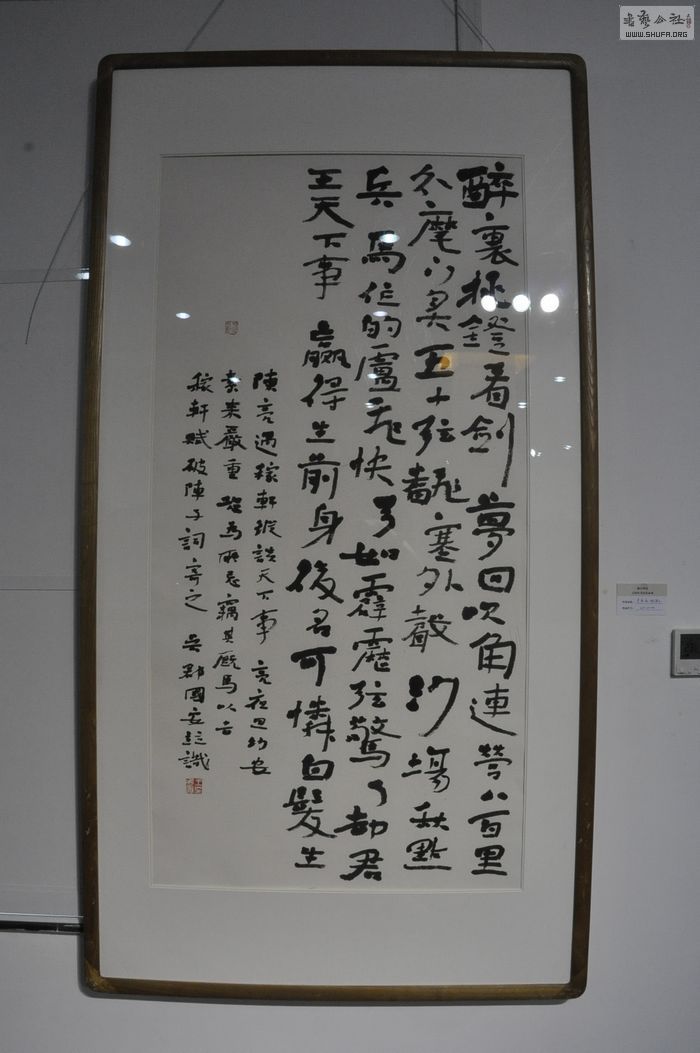 醉裏挑鐙看劍夢回吹角連營八百里
分麾下炙五十弦翻塞外聲沙場秋點
兵馬作的盧飛快弓如霹靂弦驚了却君
王天下事贏得生前身後名可憐白髮生
陳亮遇稼軒縱談天下事亮夜思幼安
素來嚴重恐為所忌竊其厩馬以去
稼軒賦破陣子詞寄之 吳郡國安並識
書藝公社
WWW.SHUFA.ORG